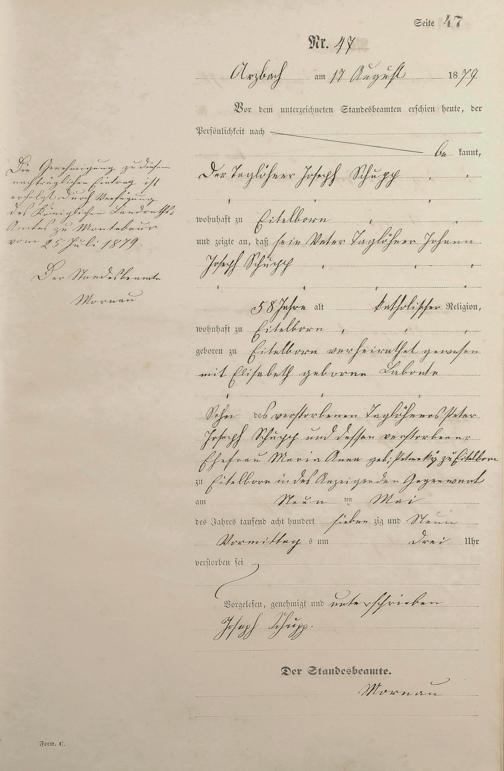 Seite 47
Nr. 47
Arzbach am 17 August 1879
Vor dem unterzeichneten Standesbeamten erschien heute, der
Persönlichkeit nach
be kannt,
Der Taglöhner Joseph Schupp
wohnhaft zu Eitelborn
und zeigte an, daß sein Vater Taglöhner Johann
Joseph Schupp
58 Jahre alt katholischer Religion,
wohnhaft zu Eitelborn
geboren zu Eitelborn verheirathet gewesen
mit Elisabeth geborne Labonte
Sohn des verstorbenen Taglöhners Peter
Joseph Schupp und dessen verstorbener
Ehefrau Maria Anna geb. zu Eitelborn
zu Eitelborn in des Anzeigenden Gegenwart
am Neun ten Mai
des Jahres tausend acht hundert sieben zig und Neun
Vormittag s um drei Uhr
verstorben sei
Vorgelesen, genehmigt und unterschrieben
Joseph Schupp.
Der Standesbeamte.
Mornau
Die Genehmigung zu diesem
nachträglichen Eintrag ist
erfolgt durch Verfügung
des Königlichen Landraths
Amtes zu Montabaur
vom 25 Juli 1879.
Der Standesbeamte
Mornau
Form. C.